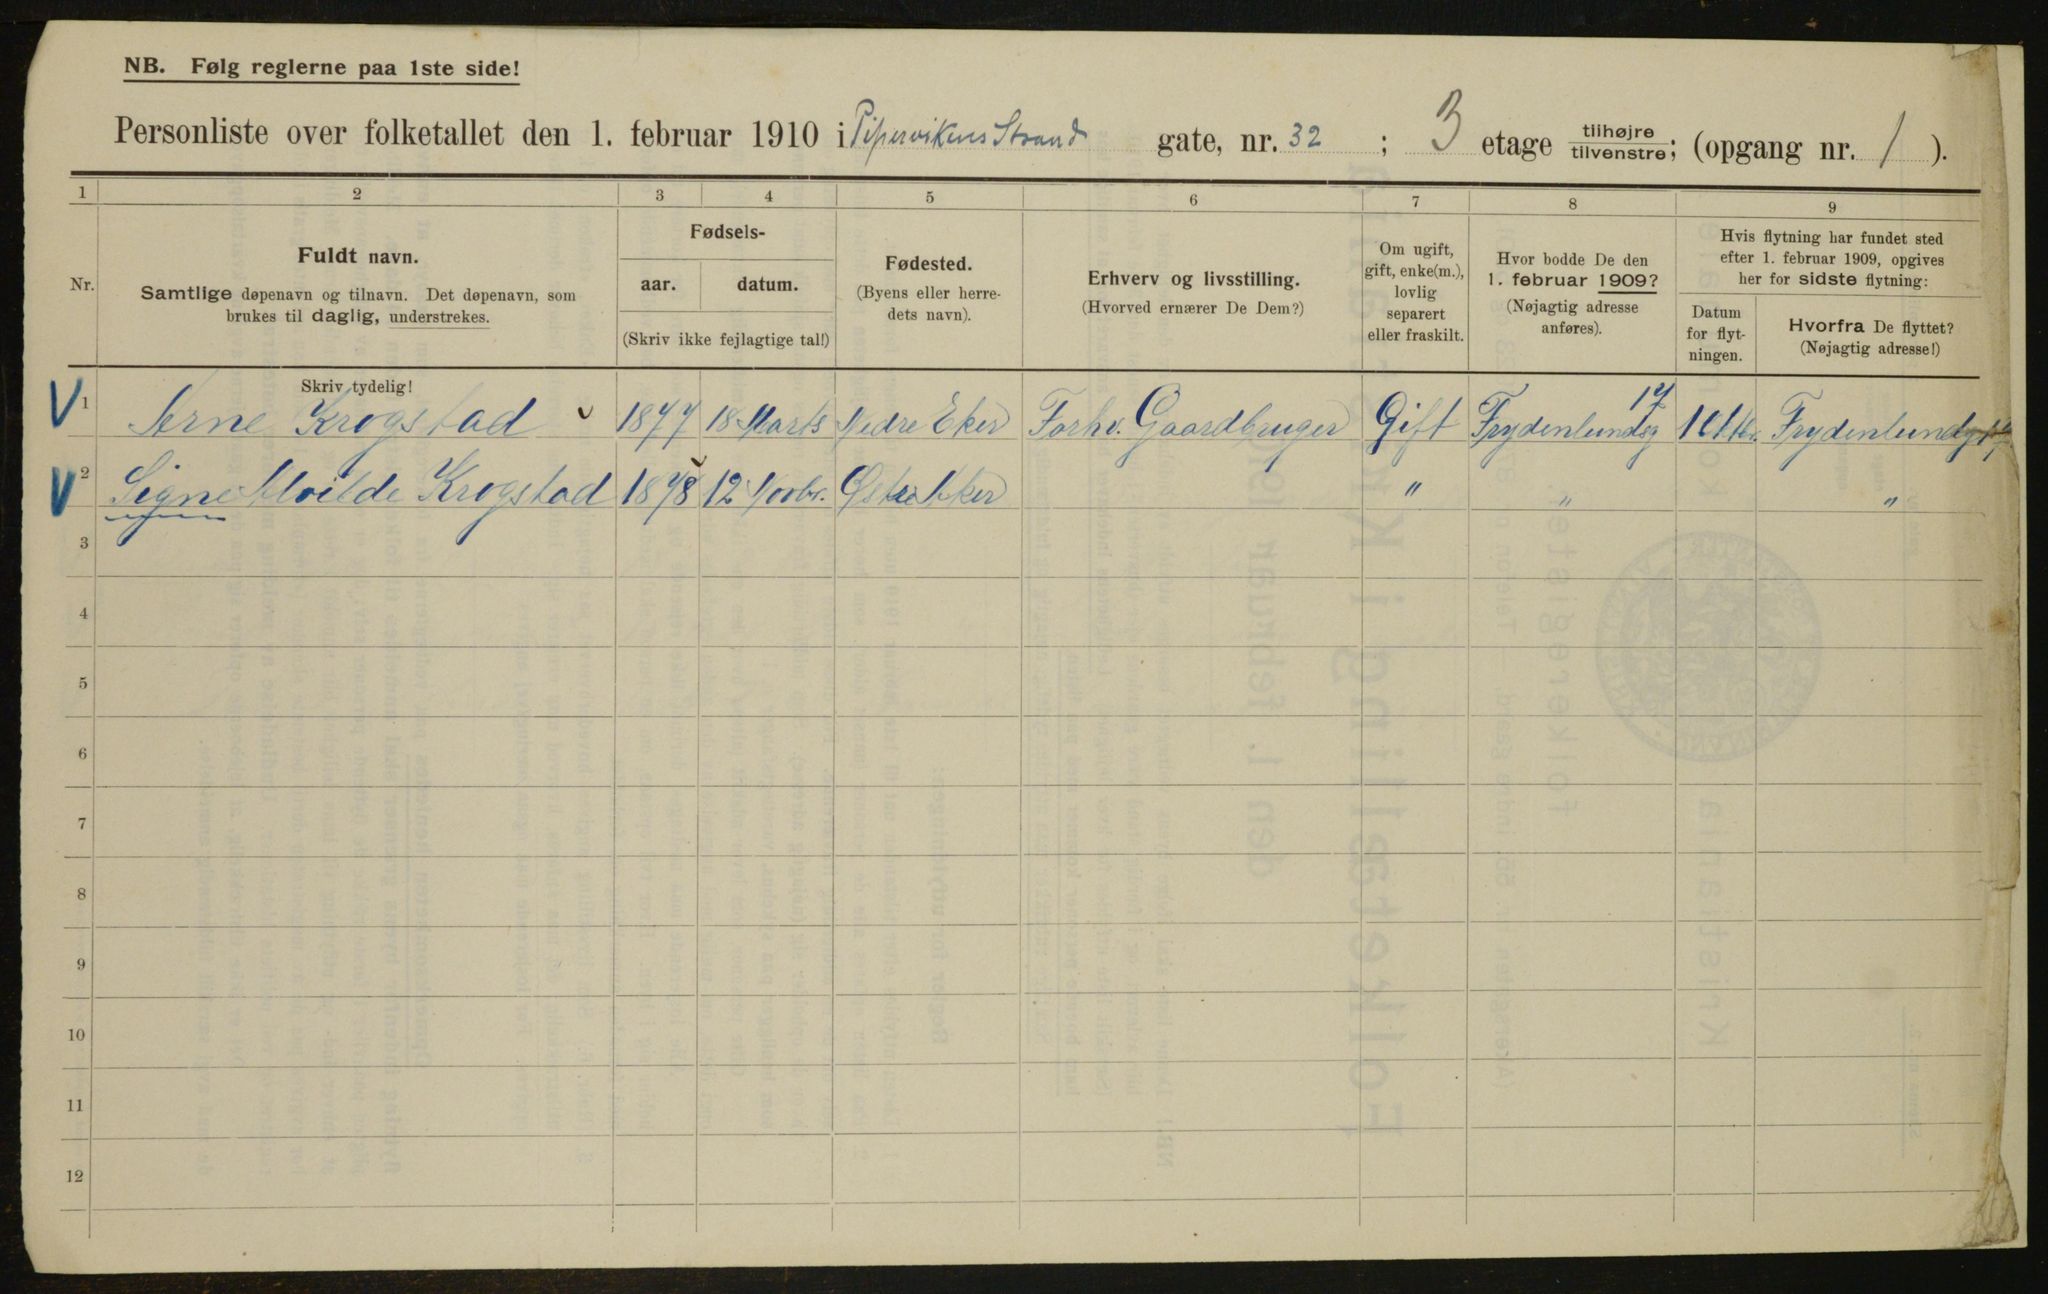 NB. Følg reglerne paa 1ste side!
Personliste over folketallet den 1. februar 1910 i Pipervikens Strand gate, nr. 32 ; 3 etage tilhøjre tilvenstre; (opgang nr. 1 ).
1 2 3 4 5 6 7 8 9
Nr.
Fuldt navn.
Samtlige døpenavn og tilnavn. Det døpenavn, som
brukes til daglig, understrekes.
Fødsels-
aar. datum.
(Skriv ikke fejlagtige tal!)
Fødested.
(Byens eller herre-
dets navn).
Erhverv og livsstilling.
(Hvorved ernærer De Dem?)
Om ugift,
gift, enke(m.),
lovlig
separert
eller fraskilt.
Hvor bodde De den
1. februar 1909?
(Nøjagtig adresse
anføres).
Hvis flytning har fundet sted
efter 1. februar 1909, opgives
her for sidste flytning:
Datum
for flyt-
ningen.
Hvorfra De flyttet?
(Nøjagtig adresse!)
Skriv tydelig!
V 1 Arne Krogstad 1877 18 Marts Nedre Eker Forhv. Gaardbruger Gift Frydenlundsg 17 Frydenlundg 17
V 2 Signe Krogstad 1878 12 Novbr. Østre Aker " " "
3
4
5
6
7
8
9
10
11
12